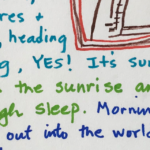 res +
, heading
g, YES! It's su
the sunrise an
gh sleep. Mornin
out into the world